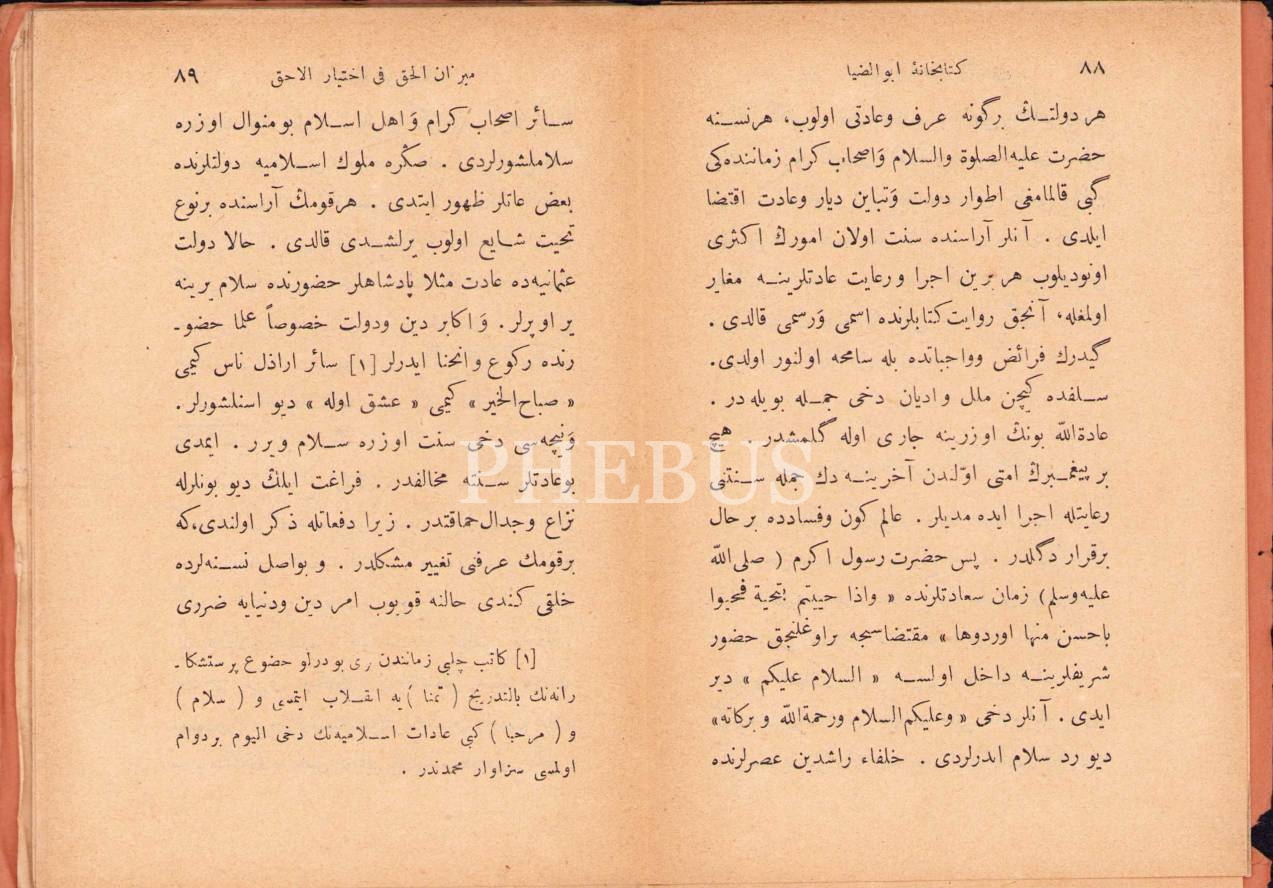 ٨٨ كتابخانهٔ ابوالضيا
هر دولتــڭ برگونه عرف وعادتى اولوب، هرنســنه
حضرت عليه‌الصلوة والسلام وَاصحاب كرام زماننده‌كى
گبى قالمامغى اطوار دولت وَتباين ديار وعادت اقتضا
ايلدى . آنلر آراسنده سنت اولان امورڭ اكثرى
اونوديلوب هر برين اجرا ورعايت عادتلرينــه مغاير
اولمغله، آنجق روايت كتابلرنده اسمى وَرسمى قالدى .
گيدرك فرائض وواجباتده بله سامحه اولنور اولدى.
ســلفده كيچن ملل واديان دخى جمــله بويله‌در .
عادة‌الله بونڭ اوزرينه جارى اوله گلمشدر . هيچ
بر پيغمــبرڭ امتى اوّلندن آخرينــه دك جمله ســنتنى
رعايتله اجرا ايده‌مديلر . عالم كون وفسادده بر حال
برقرار دگلدر . پس حضرت رسول اكرم ( صلى‌الله
عليه‌وسلم) زمان سعادتلرنده « واذا حييتم بتحية فحيوا
باحسن منها اوردوها » مقتضاسنجه براوغلنجق حضور
شريفلرينــه داخل اولســه « السلام عليكم » دير
ايدى . آنلر دخى « وعليكم‌السلام ورحمة‌الله وبركاته»
ديو رد سلام ايدرلردى . خلفاء راشدين عصرلرنده
ميزان الحق فى اختيار الاحق ٨٩
ســائر اصحاب كرام وَاهل اســلام بومنوال اوزره
سلاملشورلردى . صڭره ملوك اســلاميه دولتلرنده
بعض عاتلر ظهور ايتدى . هرقومڭ آراسنده برنوع
تحيت شــايع اولوب يرلشــدى قالدى . حالا دولت
عثمانيه‌ده عادت مثلا پادشاهلر حضورنده سلام يرينه
ير اوپرلر . وَاكابر دين ودولت خصوصاً علما حضو ـ
رنده ركوع وانحنا ايدرلر [١] سائر اراذل ناس كيمى
« صباح‌الخير » كيمى « عشق اوله » ديو اسنلشورلر.
وَنيچه‌سى دخى سنت اوزره ســلام ويرر . ايمدى
بوعادتلر ســنته مخالفدر . فراغت ايلڭ ديو بونلرله
نزاع وجدال حماقتدر . زيرا دفعاتله ذكر اولندى،كه
برقومك عرفنى تغيير مشكلدر . و بواصل نســنه‌لرده
خلقى كندى حالنه قويوب امر دين ودنيايه ضررى
[١] كاتب چلبى زمانندن برى بودرلو خضوع پرستشكا ـ
رانه‌نك بالتدريج ( تمنا ) يه انقــلاب ايتمسى و ( سلام )
و ( مرحبا ) كبى عادات اســلاميه‌نك دخى اليوم بردوام
اولمسى سزاوار محمدتدر .
PHEBUS